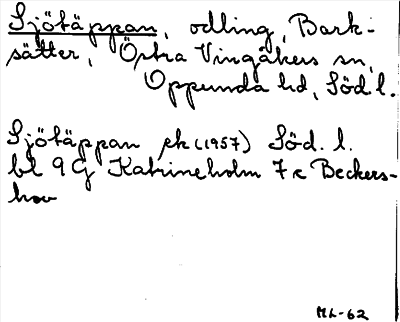 Sjötäppan, odling, Bark-
sätter, Östra Vingåkers sn,
Oppunda hd, Söd l.
Sjötäppan ek (1957) Söd. l.
bl 9 G Katrineholm 7 c Beckers-
hov
ML-62